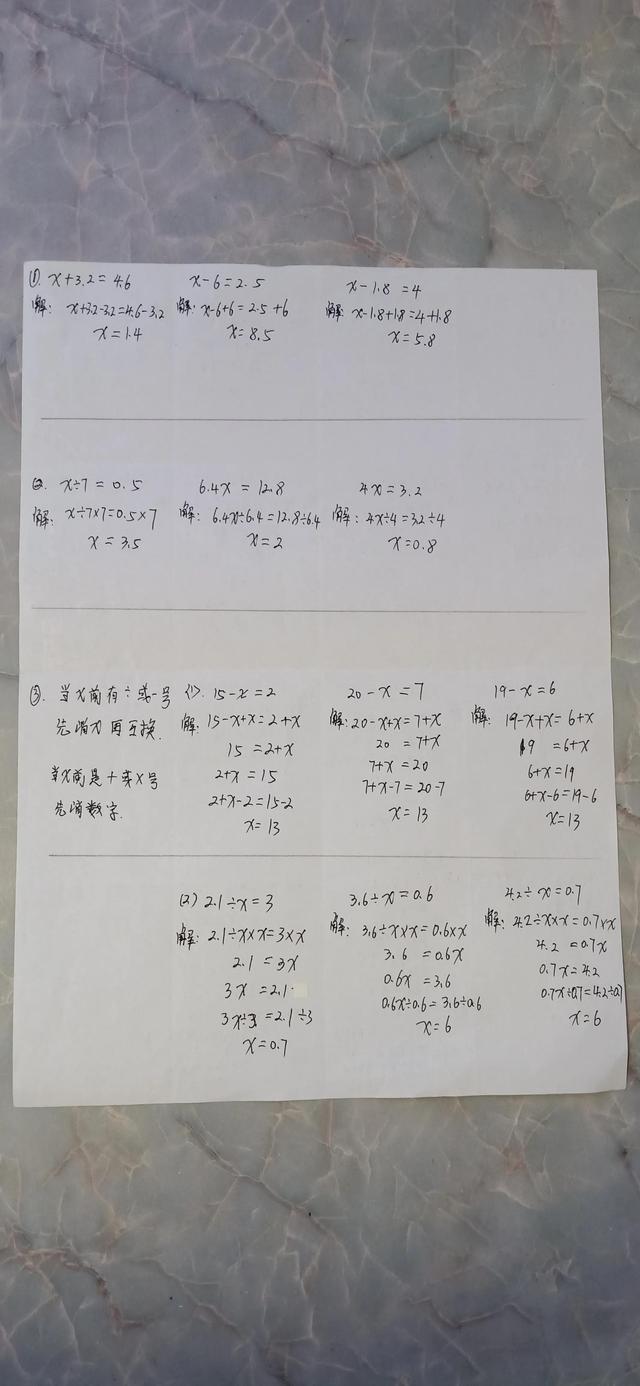 ①. x+3.2=4.6
解: x+3.2-3.2=4.6-3.2
x=1.4
x-6=2.5
解: x-6+6=2.5+6
x=8.5
x-1.8=4
解: x-1.8+1.8=4+1.8
x=5.8
②. x÷7=0.5
解: x÷7×7=0.5×7
x=3.5
6.4x=12.8
解: 6.4x÷6.4=12.8÷6.4
x=2
4x=3.2
解: 4x÷4=3.2÷4
x=0.8
③. 当x前有÷或-号
先消x再互换.
当x前是+或×号
先消数字.
(1). 15-x=2
解: 15-x+x=2+x
15=2+x
2+x=15
2+x-2=15-2
x=13
20-x=7
解: 20-x+x=7+x
20=7+x
7+x=20
7+x-7=20-7
x=13
19-x=6
解: 19-x+x=6+x
19=6+x
6+x=19
6+x-6=19-6
x=13
(2) 2.1÷x=3
解: 2.1÷x×x=3×x
2.1=3x
3x=2.1
3x÷3=2.1÷3
x=0.7
3.6÷x=0.6
解: 3.6÷x×x=0.6×x
3.6=0.6x
0.6x=3.6
0.6x÷0.6=3.6÷0.6
x=6
4.2÷x=0.7
解: 4.2÷x×x=0.7×x
4.2=0.7x
0.7x=4.2
0.7x÷0.7=4.2÷0.7
x=6